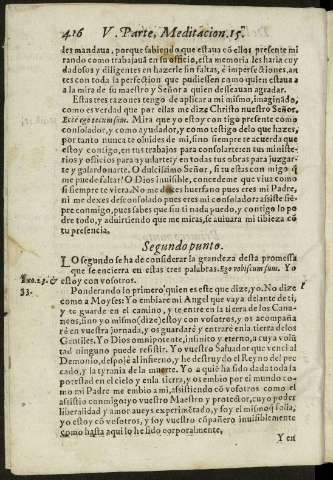 416 V. Parte, Meditacion. 15.
les mandaua, porque sabiendo que estaua cõ ellos presente mi
rando como trabajauã en su officio, esta memoria les haria cuy
dadosos y diligentes en hazerle sin faltas, é imperfecciones, an
tes con toda la perfection que pudiessen como quien estaua a
a la mira de su maestro y Señor a quien desseauan agradar.
Estas tres razones tengo de aplicar a mi mismo, imaginãdo,
como es verdad que por ellas me dize Christo nuestro Señor.
Ecce ego tecum sum. Mira que yo estoy con tigo presente como
consolador, y como ayudador, y como testigo de lo que hazes,
por tanto nunca te oluides de mi, sino siempre te acuerda que
estoy contigo, en tus trabajos para consolarte en tus ministe-
rios y officios para ayudarte, y en todas tus obras para juzgar-
te y galardonarte. O dulcissimo Señor, si tu estas con migo q̃
me puede faltar? O Dios inuisible, concedeme que viua como
si siempre te viera. No me dexes huerfano pues eres mi Padre,
ni me dexes desconsolado pues eres mi consolador: assiste siẽ-
pre conmigo, pues sabes que sin ti nada puedo, y contigo lo po
dre todo, y aduirtiendo que me miras, se auiuara mi tibieza cõ
tu presencia.
Segundo punto.
LO segundo se ha de considerar la grandeza desta promessa
que se encierra en estas tres palabras. Ego vobiscum sum. Yo
Exo. 23. &
33.
estoy con vosotros.
Ponderando lo primero quien es este que dize, yo. No dize
como a Moyses: Yo embiare mi Angel que vaya delante de ti,
y te guarde en el camino, y te entre en la tierra de los Cana-
neos, sino yo mismo (dize) estoy con vosotros, y os acompaña
rè en vuestra jornada, y os guardaré y entraré en la tierra de los
Gentiles. Yo Dios omnipotente, infinito y eterno, a cuya volũ
tad ninguno puede resistir. Yo vuestro Saluador que venci al
Demonio, despojé al infierno, y he destruydo el Reyno del pec
cado, y la tyrania de la muerte. Yo a quiẽ ha sido dada toda la
potestad en el cielo y en la tierra, y os embio por el mundo co-
mo mi Padre me embio a mi, assistiendo cõ vosotros como el
assistio conmigo: yo vuestro Maestro y protector, cuyo poder
liberalidad y amor aueys experimẽtado, y soy el mismo q̃ solia,
yo estoy cõ vosotros, y soy vuestro cõpañero inuisiblemente
como hasta aqui lo he sido corporalmente.
Y en